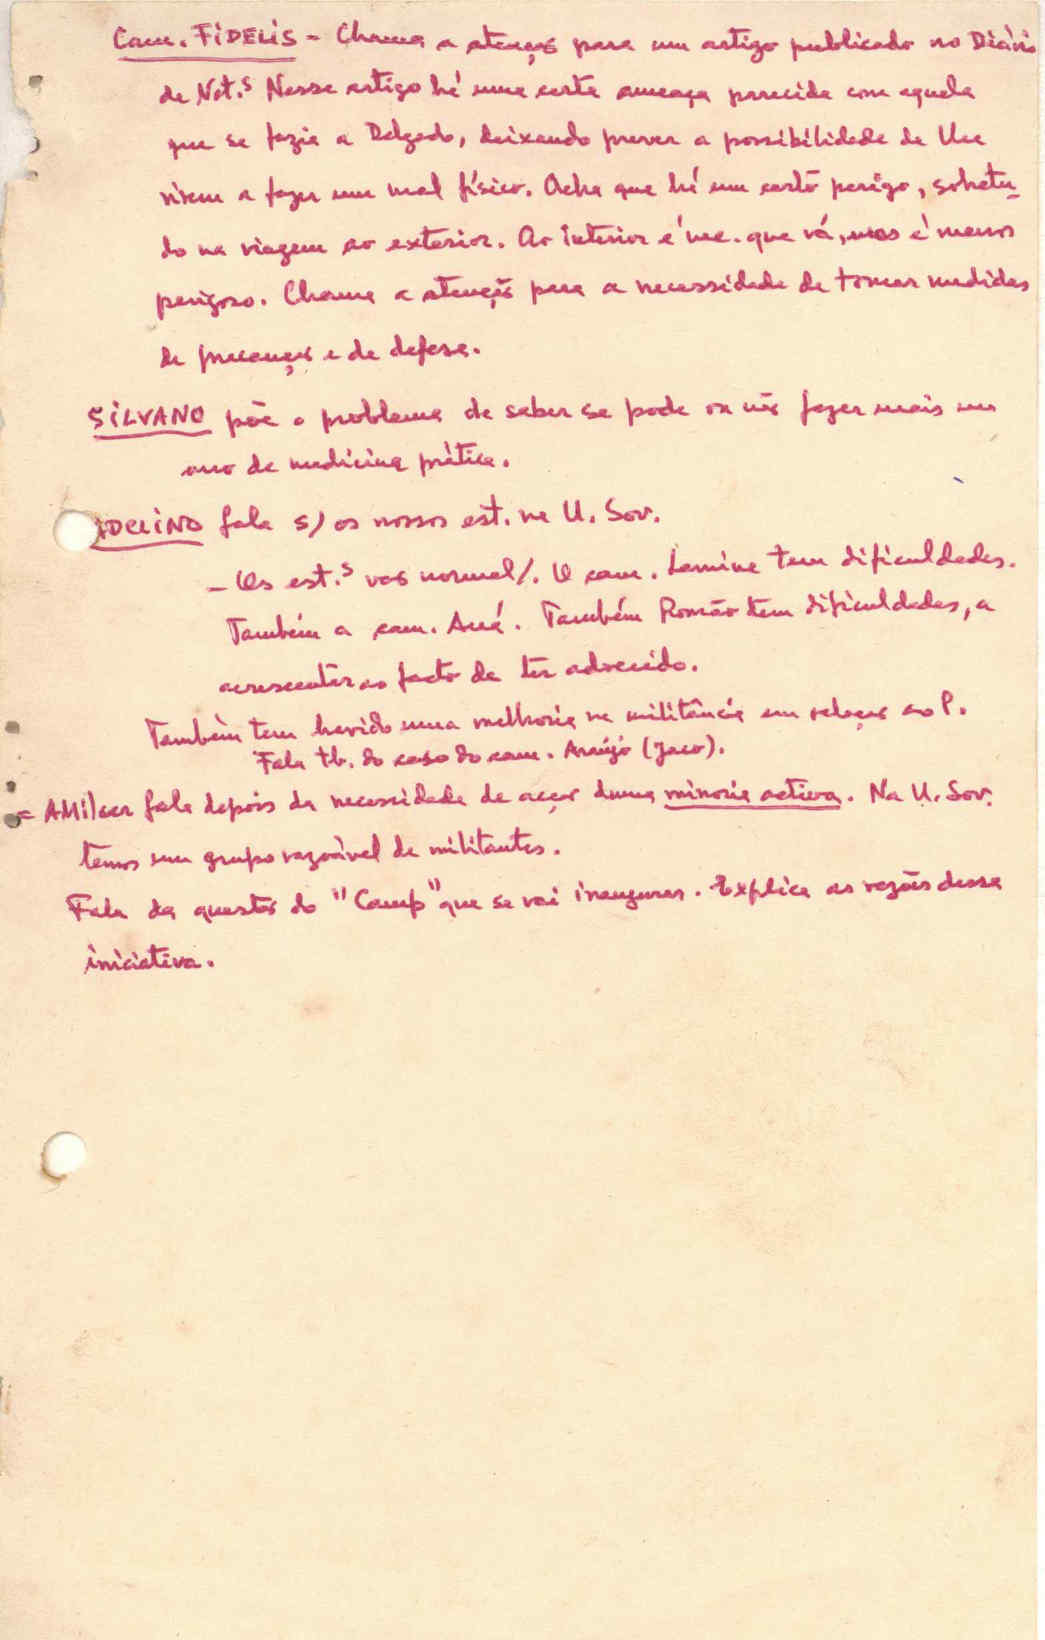 Cam. FIDELIS - Chama a atenção para um artigo publicado no Diário
de Not.s Nesse artigo há uma certa ameaça parecida com aquela
que se fazia a Delgado, deixando prever a possibilidade de lhe
virem a fazer um mal físico. Acha que há um certo perigo, sobretu-
do na viagem ao exterior. Ao interior é nec. que vá, mas é menos
perigoso. Chama a atenção para a necessidade de tomar medidas
de precaução e de defesa.
SILVANO põe o problema de saber se pode ou não fazer mais um
ano de medicina prática.
ADELINO fala s/ os nossos est. na U. Sov.
- Os est.s vão normal/. O cam. Lamine tem dificuldades.
Também a cam. Aua. Também Romão tem dificuldades, a
acrescentar ao facto de ter adoecido.
Também tem havido uma melhoria na militância em relação ao P.
Fala tb. do caso do cam. Araújo (Jaco).
= AMilcar fala depois da necessidade de acção duma minoria activa. Na U. Sov.
temos um grupo razoável de militantes.
Fala da questão do "Camp" que se vai inaugurar. Explica as razões dessa
iniciativa.